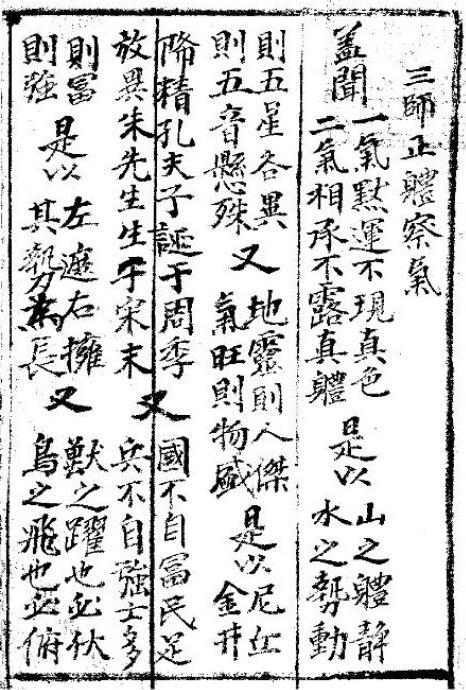 三師正體察氣
蓋聞
一氣黙運不現真色
二氣相承不露真軆
是以
山之軆靜
水之勢動
則五星各異
則五音懸殊
又
地靈則人傑
氣旺則物盛
是以
尼丘
金井
降精孔夫子誕于周季
放異朱先生生于宋末
又
國不自冨民足
兵不自強士多
則冨
則強
是以
左遮右擁
其勢為長
又
獸之躍也必伏
鳥之飛也必俯